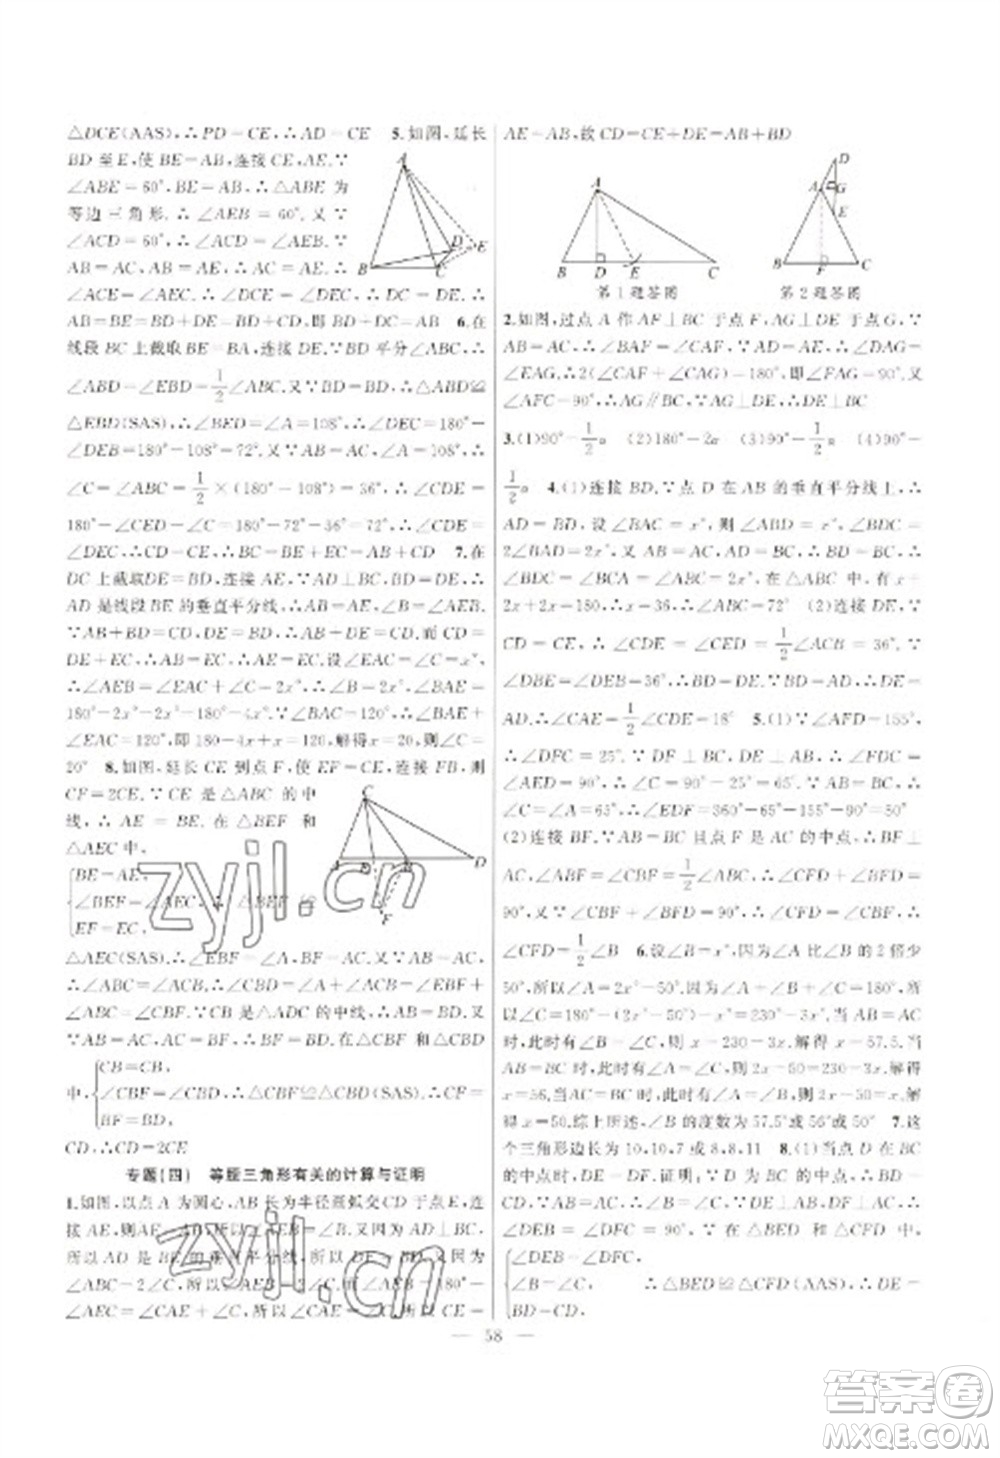 △DCE(AAS),∴PD=CE,∴AD=CE 5.如图,延长
BD至E,使BE=AB,连接CE,AE.∵
∠ABE=60°,BE=AB,∴△ABE为
等边三角形.∴∠AEB=60°.又∵
∠ACD=60°,∴∠ACD=∠AEB.∵
AB=AC,AB=AE,∴AC=AE.∴
∠ACE=∠AEC.∴∠DCE=∠DEC.∴DC=DE.∴
AB=BE=BD+DE=BD+CD,即BD+DC=AB 6.在
线段BC上截取BE=BA,连接DE.∵BD平分∠ABC,∴
∠ABD=∠EBD=1/2∠ABC.又∵BD=BD,∴△ABD≌
△EBD(SAS).∴∠BED=∠A=108°,∴∠DEC=180°-
∠DEB=180°-108°=72°.又∵AB=AC,∠A=108°,∴
∠C=∠ABC=1/2×(180°-108°)=36°,∴∠CDE=
180°-∠CED-∠C=180°-72°-36°=72°.∴∠CDE=
∠DEC,∴CD=CE.∴BC=BE+EC=AB+CD 7.在
DC上截取DE=BD,连接AE,∵AD⊥BC,BD=DE,∴
AD是线段BE的垂直平分线,∴AB=AE,∴∠B=∠AEB.
∵AB+BD=DC,DE=BD,∴AB+DE=CD.而CD=
DE+EC,∴AB=EC,∴AE=EC.设∠EAC=∠C=x°,
∴∠AEB=∠EAC+∠C=2x°,∴∠B=2x°,∠BAE=
180°-2x°-2x°=180°-4x°.∵∠BAC=120°,∴∠BAE+
∠EAC=120°,即180-4x+x=120,解得x=20,则∠C=
20° 8.如图,延长CE到点F,使EF=CE,连接FB,则
CF=2CE.∵CE是△ABC的中
线,∴AE=BE.在△BEF和
△AEC中,
BE=AE,
∠BEF=∠AEC,∴△BEF≌
EF=EC,
△AEC(SAS).∴∠EBF=∠A,BF=AC.又∵AB=AC,
∴∠ABC=∠ACB.∴∠CBD=∠A+∠ACB=∠EBF+
∠ABC=∠CBF.∵CB是△ADC的中线,∴AB=BD.又∵
AB=AC,AC=BF,∴BF=BD.在△CBF与△CBD
CB=CB,
中,∠CBF=∠CBD,∴△CBF≌△CBD(SAS).∴CF=
BF=BD,
CD.∴CD=2CE
专题(四) 等腰三角形有关的计算与证明
1.如图,以点A为圆心,AB长为半径画弧交CD于点E,连
接AE,则AE=AB,所以∠AEB=∠B.又因为AD⊥BC,
所以AD是BE的垂直平分线,所以DE=BD.又因为
∠ABC=2∠C,所以∠AEB=2∠C,∠AEB=180°-
∠AEC=∠CAE+∠C,所以∠CAE=∠C,所以CE=
AE=AB,故CD=CE+DE=AB+BD
A
B
C
D
E
第1题答图
第2题答图
2.如图,过点A作AF⊥BC于点F,AG⊥DE于点G.∵
AB=AC,∴∠BAF=∠CAF,∵AD=AE,∴∠DAG=
∠EAG.∴2(∠CAF+∠CAG)=180°,即∠FAG=90°.又
∠AFC=90°,∴AG∥BC,∵AG⊥DE,∴DE⊥BC
3.(1)90°-1/2α (2)180°-2α (3)90°-1/2α (4)90°-
1/2α 4.(1)连接BD.∵点D在AB的垂直平分线上,∴
AD=BD,设∠BAC=x°,则∠ABD=x°,∴∠BDC=
2∠BAD=2x°,∵BD=BC,∴∠C=∠BDC=2x°,又∵
AB=AC,∴∠ABC=∠C=2x°,在△ABC中,有x+
2x+2x=180,∴x=36,∴∠ABC=72° (2)连接DE,∵
CD=CE,∴∠CDE=∠CED=1/2∠ACB=36°,∵
∠DBE=∠BED=36°,∴BD=DE,
5.(1)∵∠AFD=155°,
∴∠DFC=25°.∵DF⊥BC,DE⊥AB,∴∠FDC=
∠AED=90°,∴∠C=90°-25°=65°.∵AB=BC,∴
∠C=∠A=65°,∴∠EDF=360°-65°-155°-90°=50°
(2)连接BF.∵AB=BC且点F是AC的中点,∴BF⊥
AC,∠ABF=∠CBF=1/2∠ABC,∴∠CFD+∠BFD=
90°,又∵∠CBF+∠BFD=90°,∴∠CFD=∠CBF,∴
∠CFD=1/2∠B 6.设∠B=x°,因为∠A比∠B的2倍少
50°,所以∠A=2x°-50°,因为∠A+∠B+∠C=180°,所
以∠C=180°-(2x°-50°)-x°=230°-3x°.当AB=AC
时,有∠B=∠C,所以x=230-3x,解得x=57.5,当
AB=BC时,有∠A=∠C,所以2x-50=230-3x,解得
x=56,当CA=CB时,有∠A=∠B,所以2x-50=x,
解得x=50.综上所述,∠B的度数为57.5°或56°或50° 7.这
个三角形边长为10,10,7或8,8,11 8.(1)当点D在BC
的中点时,DE=DF,理由如下:∵D为BC的中点,∴
BD=CD.∵AB=AC,∴∠B=∠C.∵DE⊥AB,DF⊥AC,∴
∠DEB=∠DFC=90°,∵在△BED和△CFD中,
∠DEB=∠DFC,
∠B=∠C, ∴△BED≌△CFD(AAS),∴DE=
BD=CD,
58
zyjl.cn
zyjl.cn
答案卷
MXQE.COM